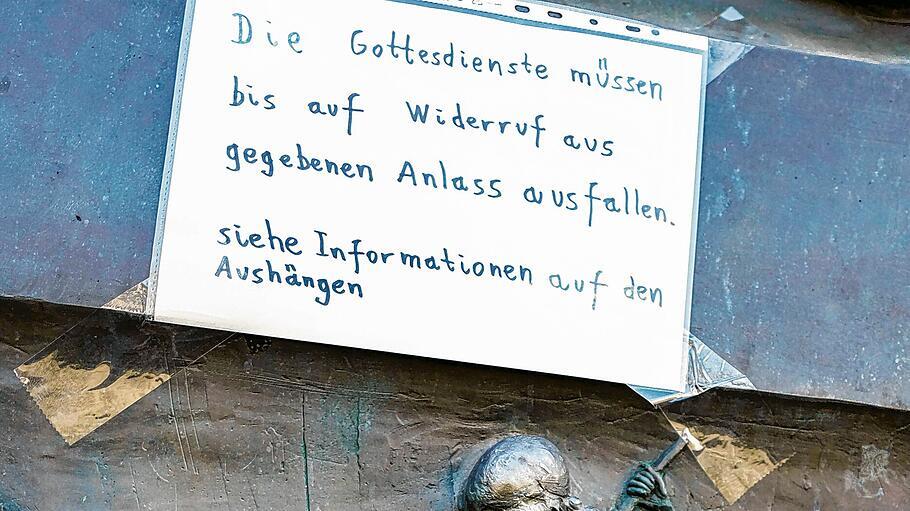 Die Gottesdienste müssen
bis auf Widerruf aus
gegebenen Anlass ausfallen.
siehe Informationen auf den
Aushängen